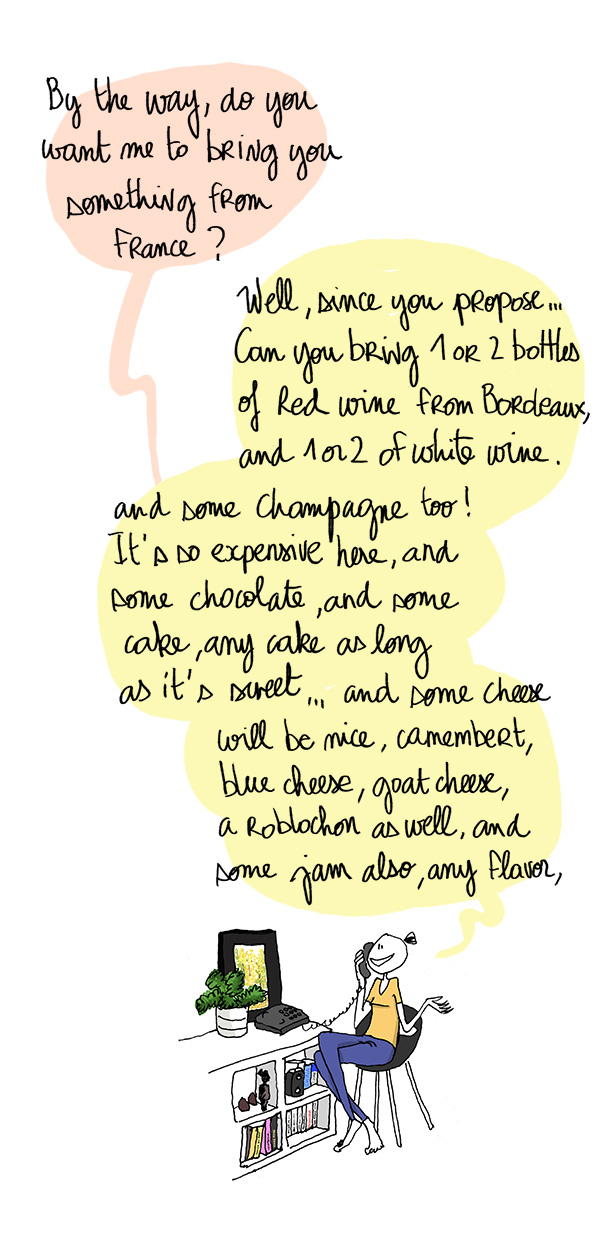 By the way, do you
want me to bring you
something from
France ?
Well, since you propose...
Can you bring 1 or 2 bottles
of Red wine from Bordeaux,
and 1 or 2 of white wine.
and some champagne too !
It's so expensive here, and
some chocolate, and some
cake, any cake as long
as it's sweet... and some cheese
will be nice, camembert,
blue cheese, goat cheese,
a Roblochon as well, and
some jam also, any flavor,